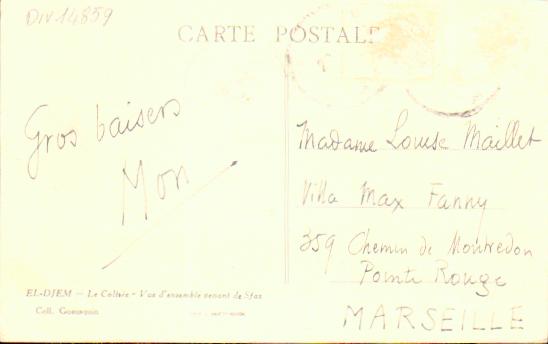 Div. 14859
CARTE POSTALE
Gros baisers
Mon
Madame Louise Maillet
Villa Max Fanny
359 Chemin de Montredon
Pointe Rouge
MARSEILLE
EL-DJEM — Le Colisée - Vue d'ensemble venant de Sfax
Coll.